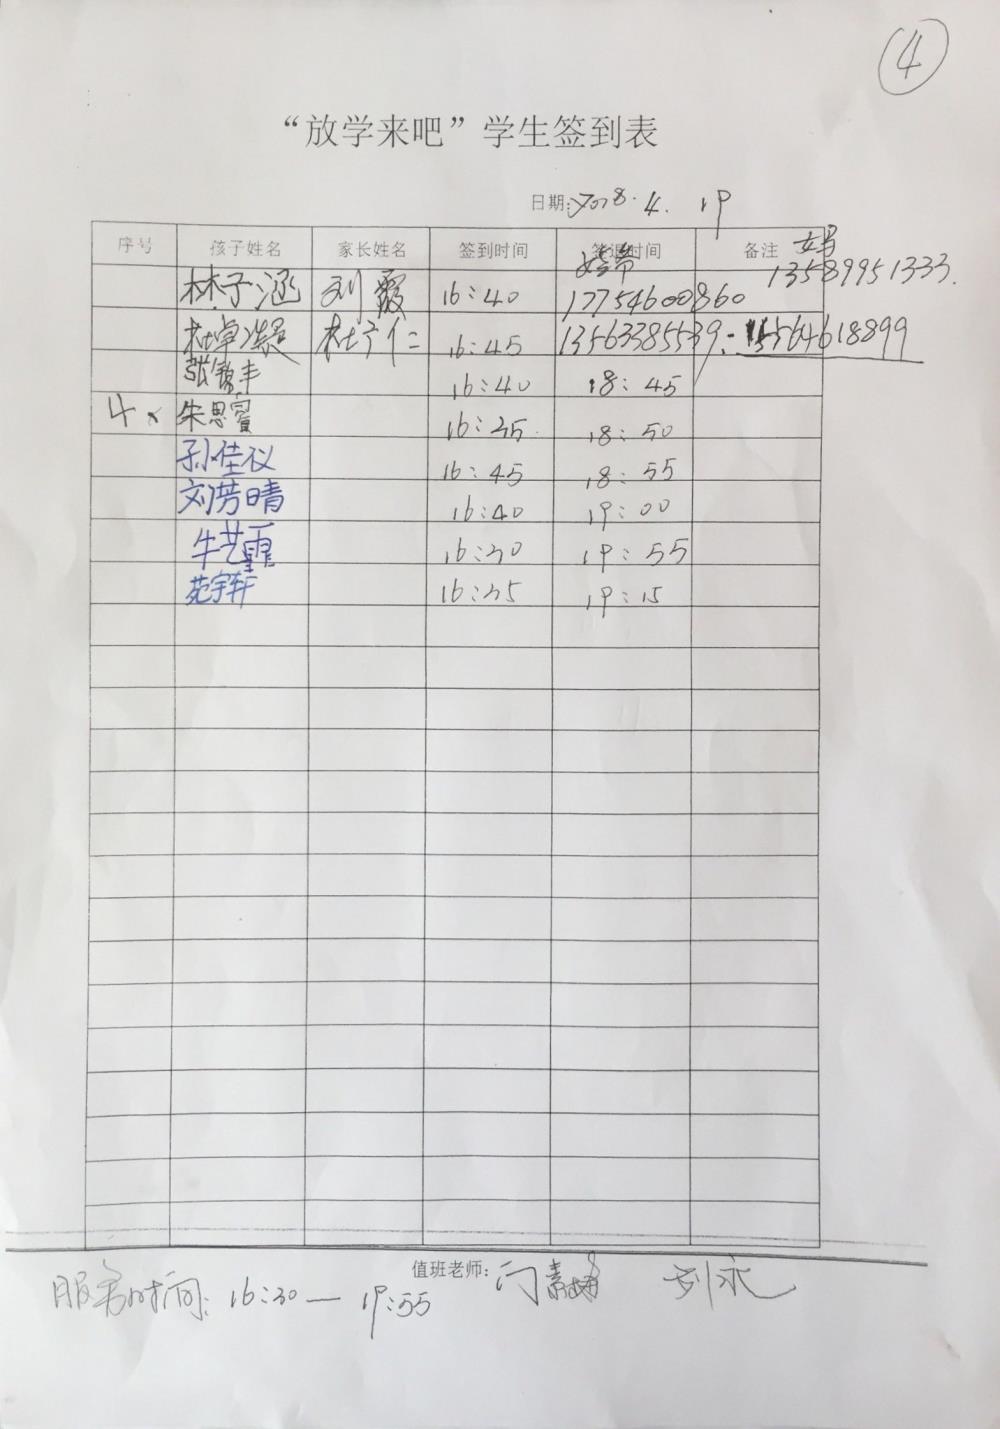 ④
“放学来吧”学生签到表
日期: 2018.4.19
序号 孩子姓名 家长姓名 签到时间 签退时间 备注 妈
13589951333.
林子涵 刘霞 16:40 17754600860
杜卓 杜广仁 16:45 13563385539. 15564618899
张锦丰 16:40 18:45
4 朱思睿 16:35 18:50
孙佳仪 16:45 18:55
刘芳晴 16:40 19:00
牛艺霏 16:30 19:55
苑宇轩 16:35 19:15
值班老师: 闫素 刘永
服务时间: 16:30— 19:55